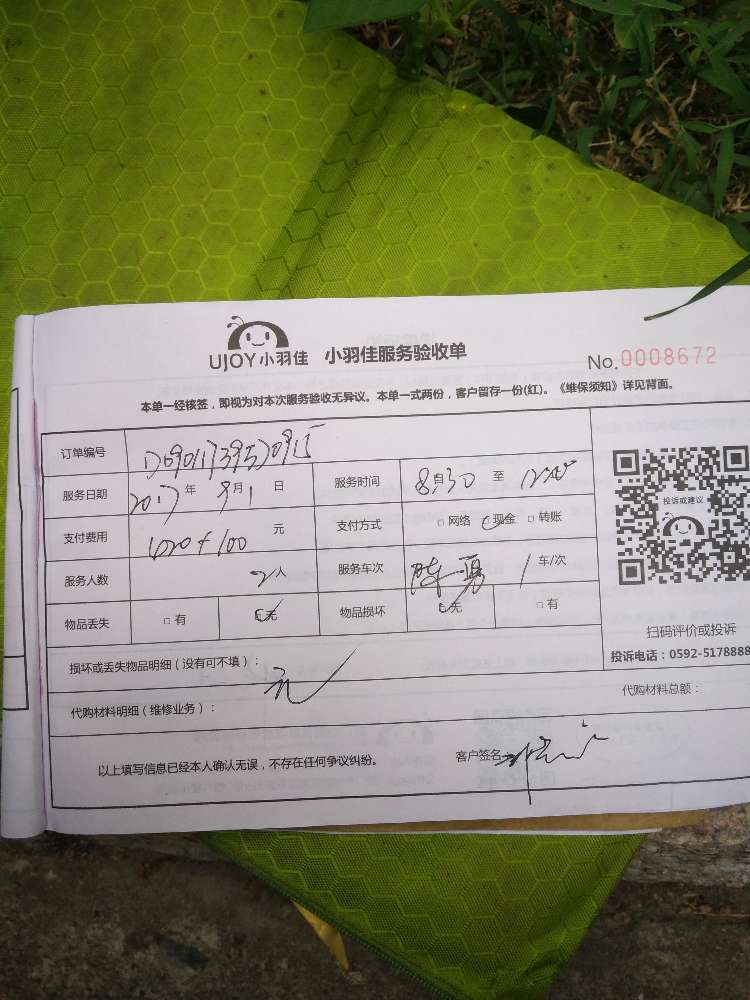 UJOY小羽佳 小羽佳服务验收单
No.0008672
本单一经核签，即视为对本次服务验收无异议。本单一式两份，客户留存一份(红)。《维保须知》详见背面。
订单编号
服务日期 2017年 9月1日 服务时间 8:30 至
支付费用 元 支付方式 □网络 □现金 □转账
服务人数 2人 服务车次 陈勇 1车/次
物品丢失 □有 □无 物品损坏 □无 □有
投诉或建议
扫码评价或投诉
投诉电话：0592-5178888
损坏或丢失物品明细（没有可不填）： 无
代购材料明细（维修业务）： 代购材料总额：
以上填写信息已经本人确认无误，不存在任何争议纠纷。 客户签名